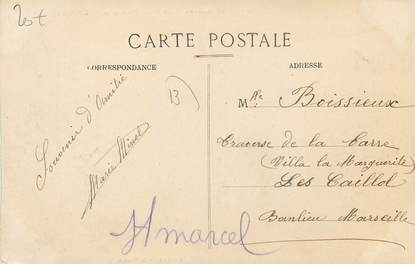 20t
CARTE POSTALE
CORRESPONDANCE
ADRESSE
13
Souvenir d'Amitié
Marie Minet
Mlle Boissieux
Traverse de la Barre
(Villa la Marguerite)
Les Caillol
Banlieu Marseille
St marcel